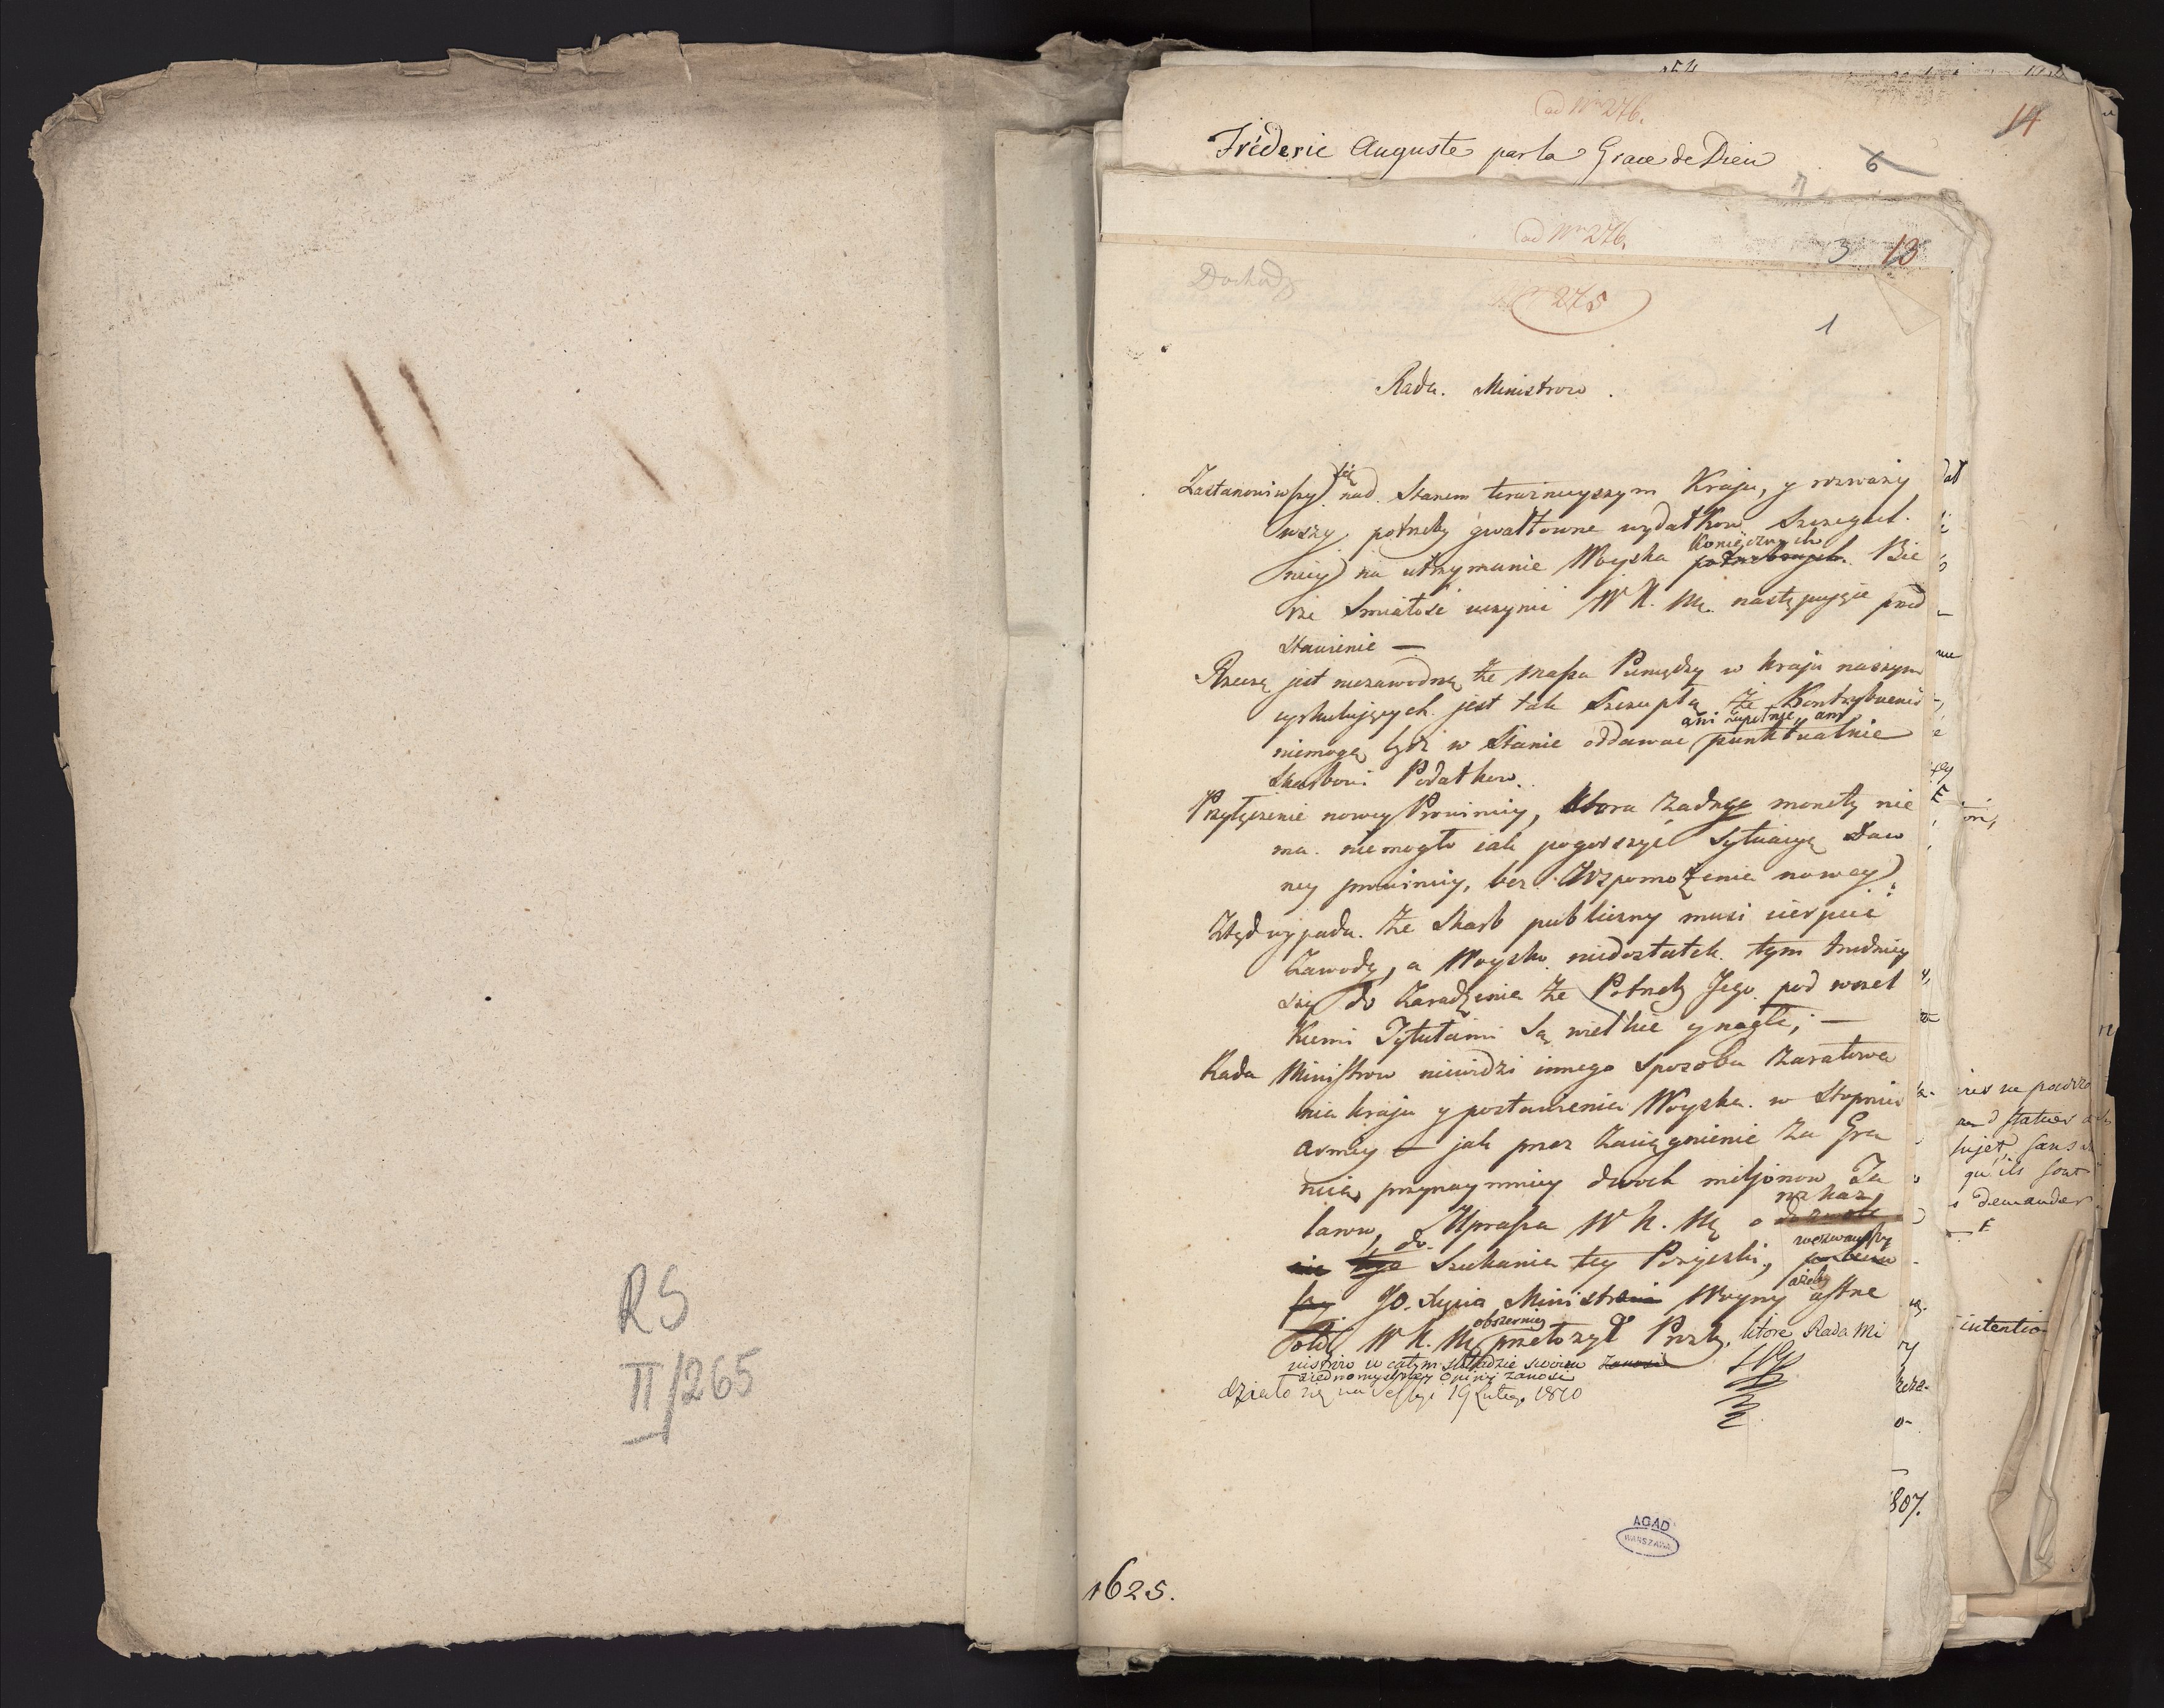 RS
II/265
14
ad Nr 276.
Fréderic Auguste par la Grace de Dieu
6
7
ad Nr 276.
3 13
Dochody
275
1
Rada Ministrow.
Zastanowiwszy się nad Stanem teraznieyszym Kraju, y rozważy
wszy potrzeby gwałtowne wydatkow szczegul.
niey na utrzymanie Woyska potrzebnych koniecznych Bie
rze smiałość uczynić W K. Mci następujące przed
stawienie —
Rzeczą jest niezawodną że massa Pieniędzy w kraju naszym
cyrkulujących jest tak szczupła że Kontrybuenci
niemogą bydz w Stanie oddawać ani zupełnie, ani punktualnie
Skarbowi Podatkow.
Przyłączenie nowey Prowincyi, ktora żadney monety nie
ma. niemogło iak pogorszyć sytuacyą daw
ney prowincyi, bez Wspomożenia nowey;
Ztąd wypada. że Skarb publiczny musi cierpieć
Zawody, a Woysko niedostatek tym trudniey
szy do Zaradzenia że Potrzeby Jego pod wszel
kiemi Tytułami są wielkie y nagłe; —
Rada Ministrow niewidzi innego sposobu zaratowa
nia kraju y postawienia Woyska w Stopniu
armiy — jak przez zaciągnienie za Gra
nicą przynaymniey dwoch milionow Ta
larow, Uprasza W K. Mci o dozwole rozkaz
nie tego do Szukania tey Pożyczki, wezwawszy
szy JO. Xięcia Ministra Woyny ażeby ustne
W K. Mci obszerniey przełożył Prozby, ktore Rada Mi
nistrow w całym składzie swoim zanosi
ziednomyślney opinij zanosi
działo się na Sessyi 19 Lutego 1810
807.
AGAD
WARSZAWA
1625.
sujet, sans
qu'ils sont
demander
intention